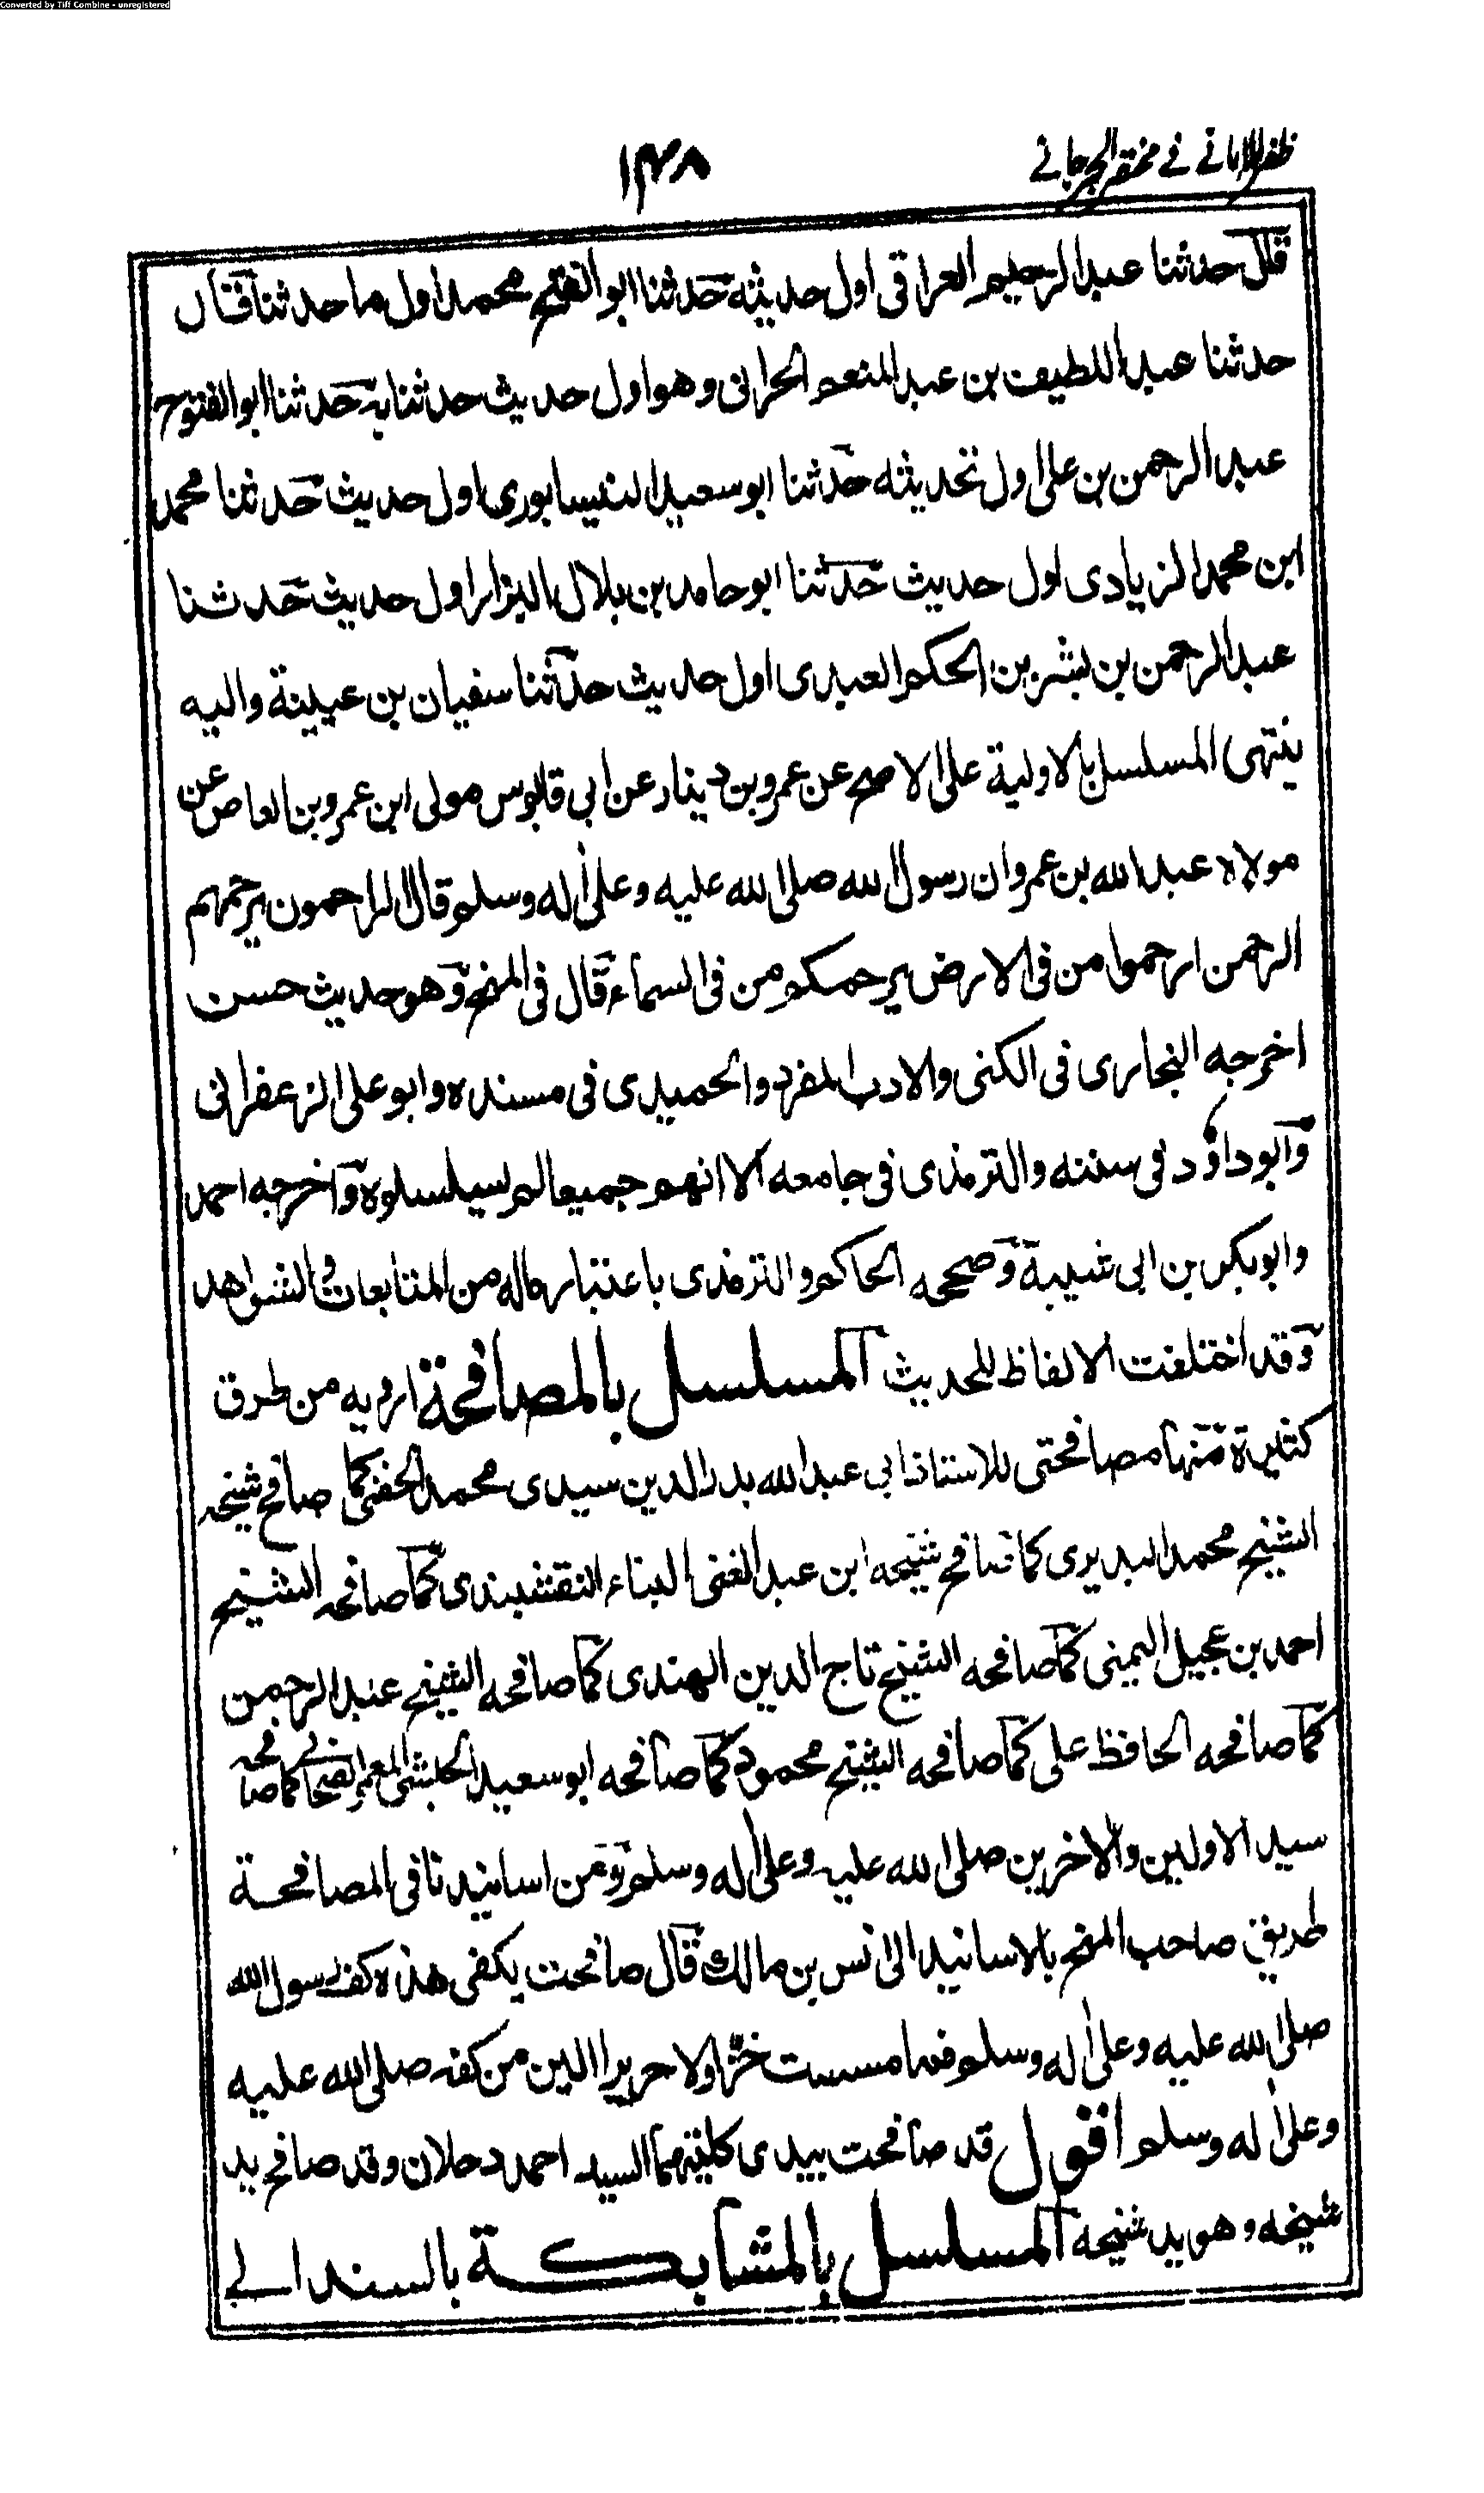 Converted by Tiff Combine - unregistered
ظفر الاماني في مختصر الجرجاني
١٣٨
قال حدثنا عبد الرحيم العراقى اول حديثه حدثنا ابو الفتح محمد اول ما حدثنا قال
حدثنا عبد اللطيف بن عبد المنعم الحرانى وهو اول حديث حدثنا به حدثنا ابو الفتوح
عبد الرحمن بن على اول تحديثه حدثنا ابو سعيد النيسابورى اول حديث حدثنا محمد
ابن محمد الزيادى اول حديث حدثنا ابو حامد بن بلال البزار اول حديث حدثنا
عبد الرحمن بن بشر بن الحكم العبدى اول حديث حدثنا سفيان بن عيينة واليه
ينتهى المسلسل بالاولية على الاصح عن عمرو بن دينار عن ابى قابوس مولى ابن عمرو بن العاص عن
مولاه عبد الله بن عمرو ان رسول الله صلى الله عليه وعلى اله وسلم قال الراحمون يرحمهم
الرحمن ارحموا من فى الارض يرحمكم من فى السماء قال فى المنح وهو حديث حسن
اخرجه البخارى فى الكنى والادب المفرد والحميدى فى مسنده وابو على الزعفرانى
وابو داؤد فى سننه والترمذى فى جامعه الا انهم جميعا لم يسلسلوه واخرجه احمد
وابو بكر بن ابى شيبة وصححه الحاكم والترمذى باعتبار ماله من المتابعات والشواهد
وقد اختلفت الالفاظ للحديث المسلسل بالمصافحة ارويه من طرق
كثيرة منها مصافحتى للاستاذ ابى عبد الله بدر الدين سيدى محمد الحفنى كما صافح شيخه
الشيخ محمد البديرى كما صافح شيخه ابن عبد الغنى البناء النقشبندى كما صافحه الشيخ
احمد بن عجيل اليمنى كما صافحه الشيخ تاج الدين الهندى كما صافحه الشيخ عبد الرحمن
كما صافحه الحافظ على كما صافحه الشيخ محمود كما صافحه ابو سعيد الحبشى المعمر الصحابي كما صافحه
سيد الاولين والاخرين صلى الله عليه وعلى اله وسلم ومن اسانيدنا فى المصافحة
طريق صاحب المنح بالاسانيد الى انس بن مالك قال صافحت بكفى هذه كف رسول الله
صلى الله عليه وعلى اله وسلم فما مسست خزا ولا حريرا الين من كفه صلى الله عليه
وعلى اله وسلم اقول قد صافحت بيدى كلتيهما السيد احمد دحلان وقد صافح يد
شيخه وهو يد شيخه المسلسل بالمشابكة بالسند الى